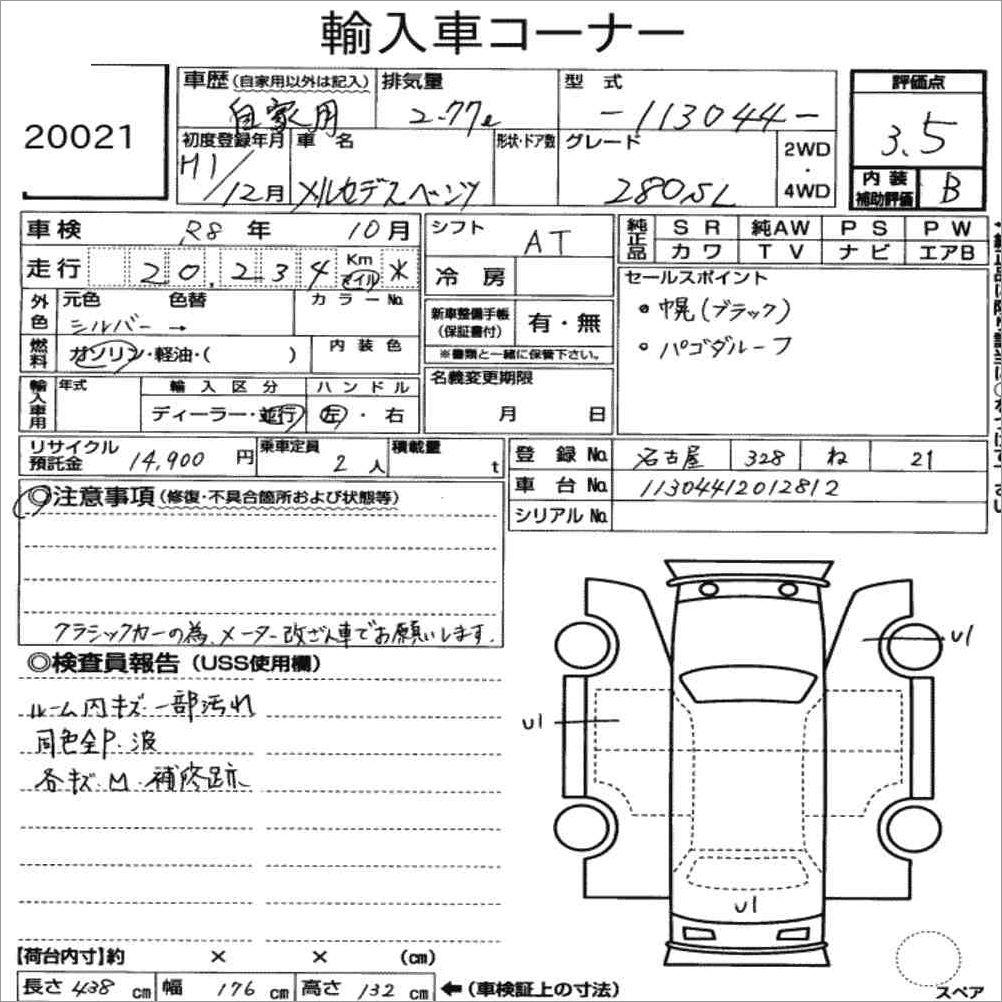 輸入車コーナー
20021
車歴(自家用以外は記入) 排気量 型式 評価点
自家用 2.77ℓ -113044- 3.5
初度登録年月 車名 形状・ドア数 グレード 2WD・4WD 内装補助評価 B
H1/12月 メルセデスベンツ 280SL
車検 R8年 10月 シフト AT 純正品 SR 純AW PS PW
カワ TV ナビ エアB
走行 20,234 Km マイル * 冷房 セールスポイント
外色 元色 色替 カラーNo. 新車整備手帳(保証書付) 有・無 ・幌(ブラック)
シルバー→ ※書類と一緒に保管下さい。 ・パゴダルーフ
燃料 ガソリン・軽油・( ) 内装色
輸入車用 年式 輸入区分 ハンドル 名義変更期限
ディーラー・並行 左・右 月 日
リサイクル預託金 14,900円 乗車定員 2人 積載量 t 登録No. 名古屋 328 ね 21
車台No. 11304412012812
シリアルNo.
◎注意事項(修復・不具合箇所および状態等)
クラシックカーの為、メーター改ざん車でお願いします.
◎検査員報告(USS使用欄)
ルーム内キズ 一部汚れ
同色全P.波
各キズ.M.補修跡
U1
U1
U1
【荷台内寸】約 × × (cm)
長さ 438 cm 幅 176 cm 高さ 132 cm ←(車検証上の寸法)
スペア